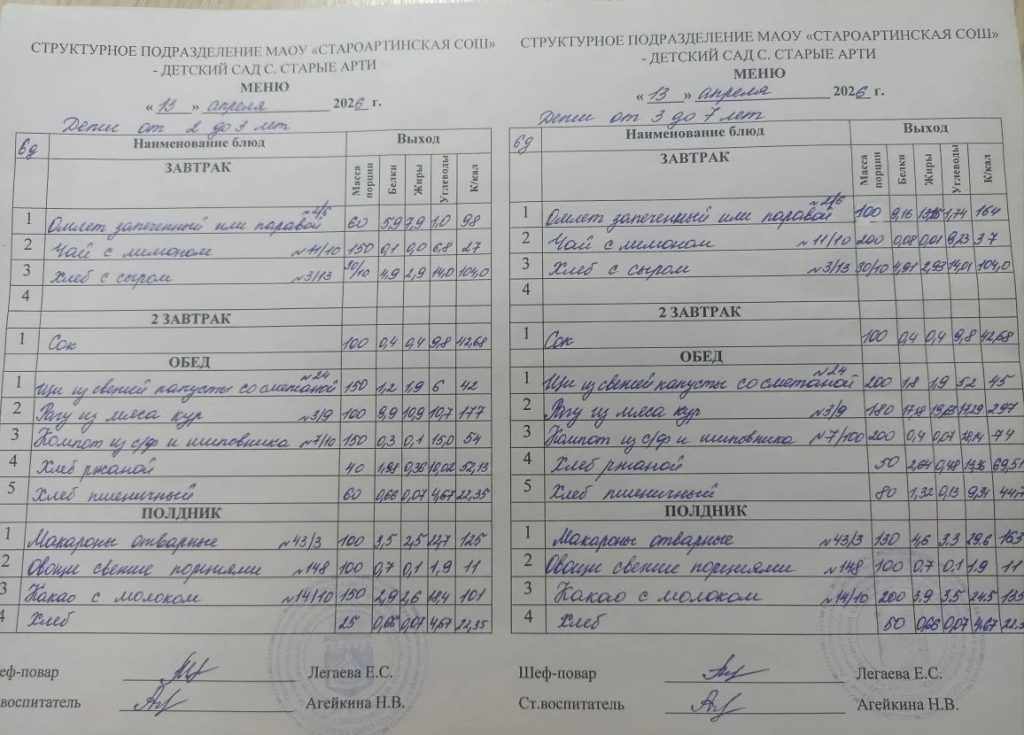 СТРУКТУРНОЕ ПОДРАЗДЕЛЕНИЕ МАОУ «СТАРОАРТИНСКАЯ СОШ»
- ДЕТСКИЙ САД С. СТАРЫЕ АРТИ
МЕНЮ
« 13 » апреля 2026 г.
Дети от 2 до 3 лет
6д Наименование блюд Выход
ЗАВТРАК Масса порции Белки Жиры Углеводы К/кал
1 Омлет запеченный или паровой №2/6 60 5,9 7,9 1,0 98
2 Чай с лимоном №11/10 150 0,1 0,0 6,8 27
3 Хлеб с сыром №3/13 30/10 4,9 2,9 14,0 104,0
4
2 ЗАВТРАК
1 Сок 100 0,4 0,4 9,8 42,68
ОБЕД
1 Щи из свежей капусты со сметаной №24 150 1,2 1,9 6 42
2 Рагу из мяса кур №3/9 100 9,9 10,9 10,7 177
3 Компот из с/ф и шиповника №7/10 150 0,3 0,1 15,0 54
4 Хлеб ржаной 40 1,98 0,36 10,02 52,13
5 Хлеб пшеничный 60 0,66 0,07 4,67 22,35
ПОЛДНИК
1 Макароны отварные №43/3 100 3,5 2,5 22,7 125
2 Овощи свежие порциями №148 100 0,7 0,1 1,9 11
3 Какао с молоком №14/10 150 2,9 2,6 18,4 101
4 Хлеб 25 0,66 0,07 4,67 22,35
еф-повар Легаева Е.С.
воспитатель Агейкина Н.В.
СТРУКТУРНОЕ ПОДРАЗДЕЛЕНИЕ МАОУ «СТАРОАРТИНСКАЯ СОШ»
- ДЕТСКИЙ САД С. СТАРЫЕ АРТИ
МЕНЮ
« 13 » апреля 2026 г.
Дети от 3 до 7 лет
6д Наименование блюд Выход
ЗАВТРАК Масса порции Белки Жиры Углеводы К/кал
1 Омлет запеченный или паровой №2/6 100 9,16 1,74 164
2 Чай с лимоном №11/10 200 0,08 0,01 9,23 37
3 Хлеб с сыром №3/13 30/10 4,91 2,93 14,01 104,0
4
2 ЗАВТРАК
1 Сок 100 0,4 0,4 9,8 42,68
ОБЕД
1 Щи из свежей капусты со сметаной №24 200 1,8 1,9 5,2 45
2 Рагу из мяса кур №3/9 180 297
3 Компот из с/ф и шиповника №7/100 200 0,4 0,07 74
4 Хлеб ржаной 50 2,64 0,48 13,36 69,51
5 Хлеб пшеничный 80 1,32 0,13 9,34 44,7
ПОЛДНИК
1 Макароны отварные №43/3 130 4,6 3.3 29,6 163
2 Овощи свежие порциями №148 100 0.7 0,1 1.9 11
3 Какао с молоком №14/10 200 3,9 3,5 24,5 135
4 Хлеб 50 0,66 0,07 4,67 22.3
Шеф-повар Легаева Е.С.
Ст.воспитатель Агейкина Н.В.